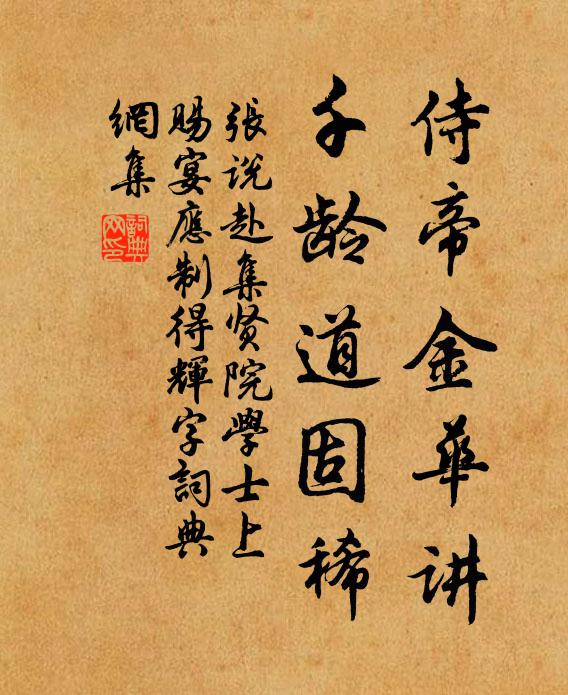 侍帝金華讲
千龄道固稀
張说赴集贤院學士上
賜宴應制得輝字詞典
網集
詞典网印